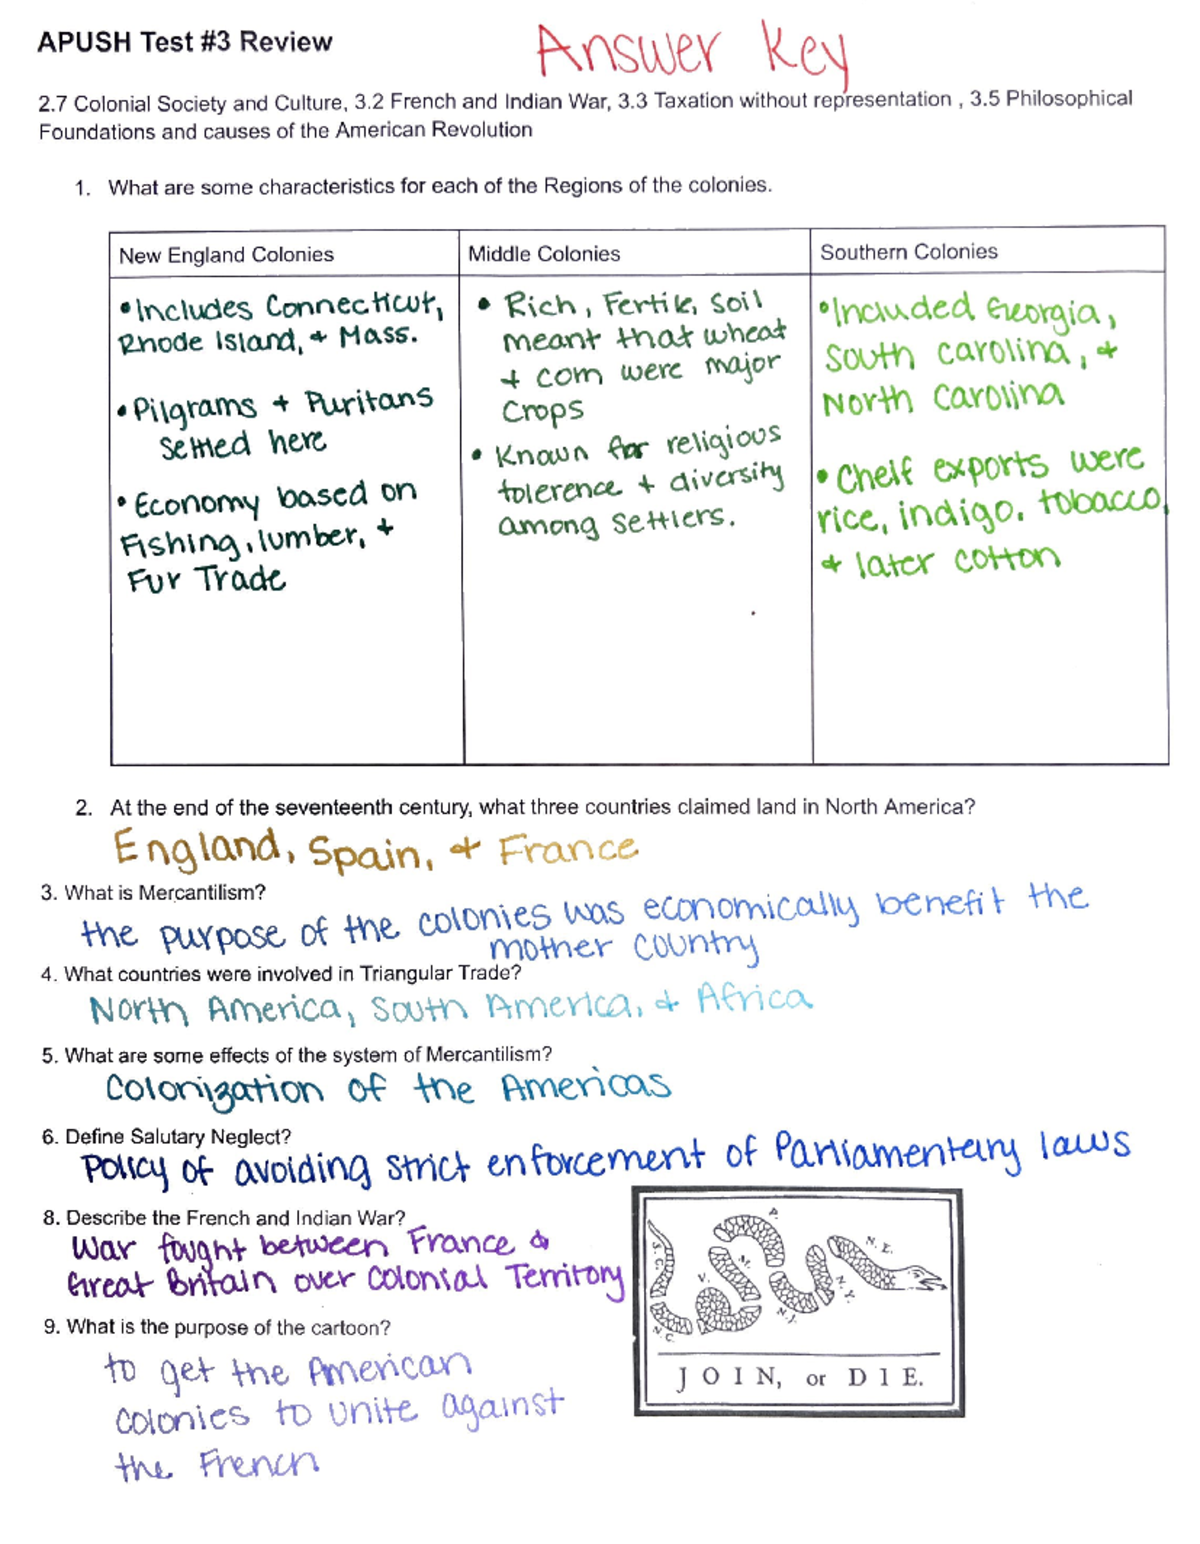 APUSH Test #3 Review
Answer Key
2.7 Colonial Society and Culture, 3.2 French and Indian War, 3.3 Taxation without representation , 3.5 Philosophical
Foundations and causes of the American Revolution
1. What are some characteristics for each of the Regions of the colonies.
New England Colonies
•Includes Connecticut,
Rhode Island, + Mass.
•Pilgrams + Puritans
settled here
•Economy based on
Fishing, lumber, +
Fur Trade
Middle Colonies
• Rich, Fertile, Soil
meant that wheat
+ corn were major
Crops
• Known for religious
tolerence + diversity
among settlers.
Southern Colonies
•Included Georgia,
South Carolina, +
North Carolina
•Cheif exports were
rice, indigo, tobacco,
+ later cotton
2. At the end of the seventeenth century, what three countries claimed land in North America?
England, Spain, + France
3. What is Mercantilism?
the purpose of the colonies was economically benefit the
mother country
4. What countries were involved in Triangular Trade?
North America, South America, + Africa
5. What are some effects of the system of Mercantilism?
Colonization of the Americas
6. Define Salutary Neglect?
Policy of avoiding strict enforcement of Parliamentary laws
8. Describe the French and Indian War?
War fought between France &
Great Britain over Colonial Territory
9. What is the purpose of the cartoon?
to get the American
colonies to unite against
the French
S. C.
N. C.
V.
M.
P.
N. J.
N. Y.
N. E.
JOIN, or DIE.